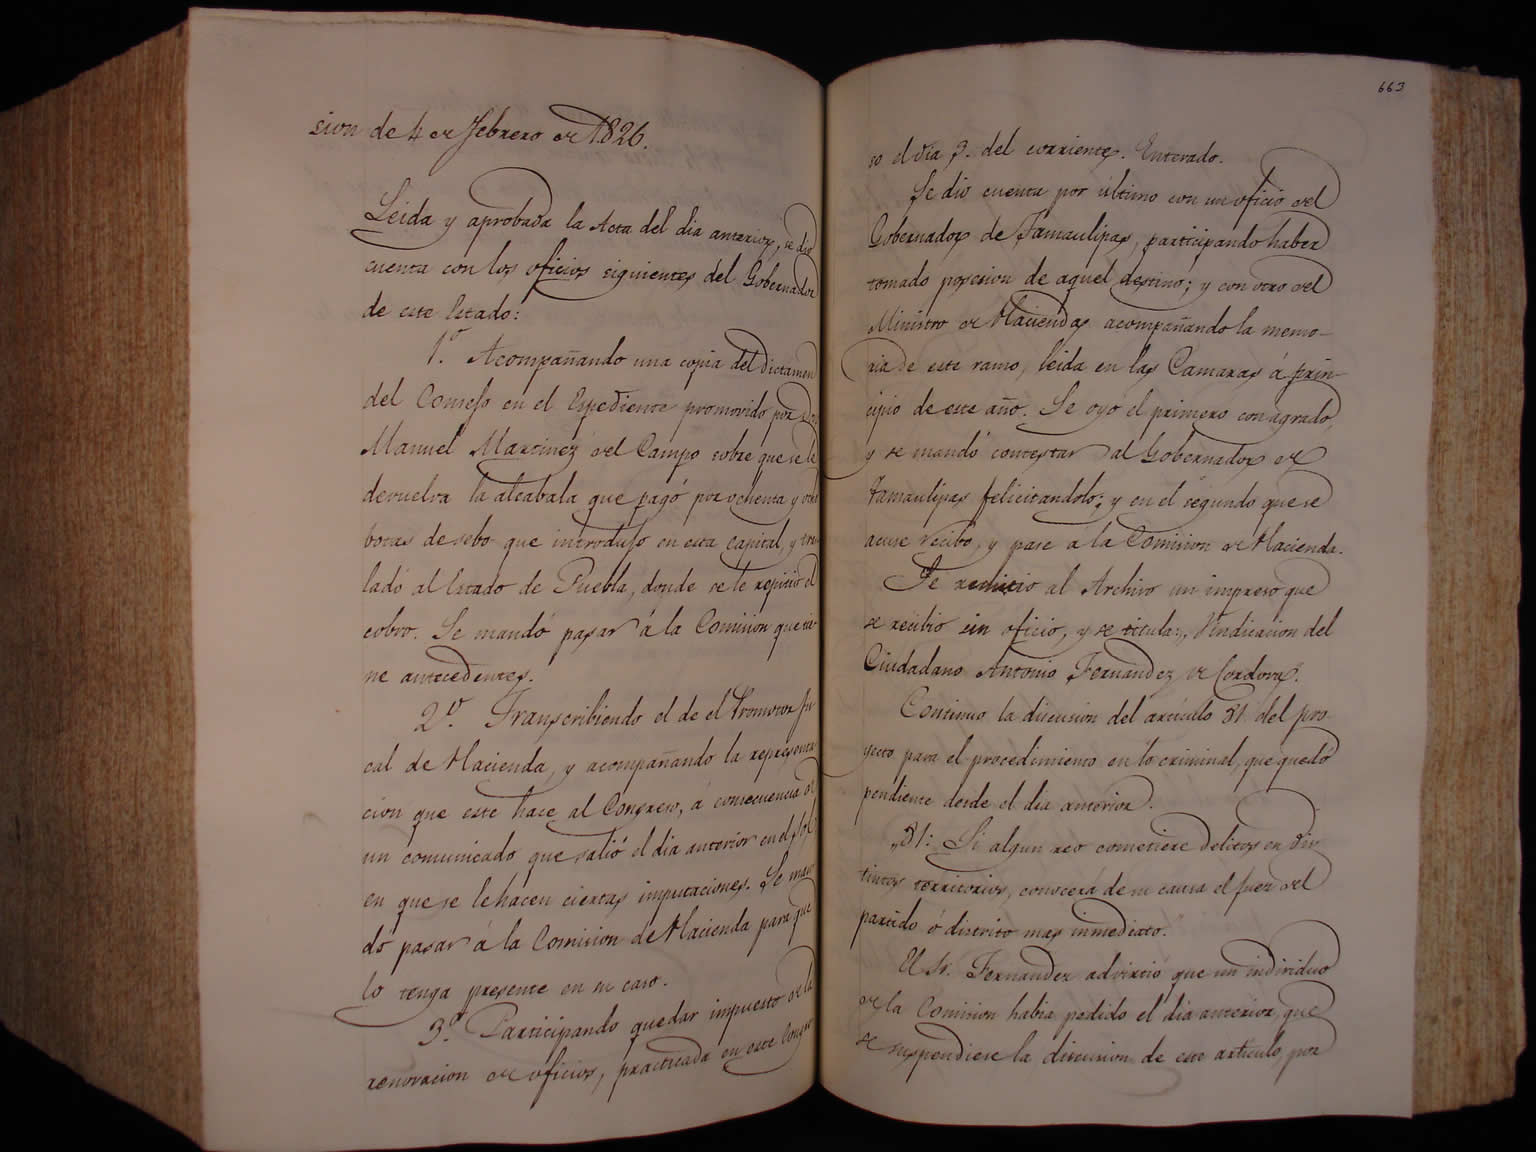 sion de 4 de Febrero de 1826.
Leida y aprobada la Acta del dia anterior, se dio
cuenta con los oficios siguientes del Gobernador
de este Estado:
1º. Acompañando una copia del dictamen
del Consejo en el Expediente promovido por Don
Manuel Martinez del Campo sobre que se le
devuelva la alcabala que pagó por ochenta y
botas de sebo que introdujo en esta capital, y tras
ladó al Estado de Puebla, donde se le repitió el
cobro. Se mandó pasar á la Comision que tie
ne antecedentes.
2º. Transcribiendo el de el Promotor fis
cal de Hacienda, y acompañando la representa
cion que este hace al Congreso, á consecuencia de
un comunicado que salió el dia anterior en el Sol
en que se le hacen ciertas imputaciones. Se man
dó pasar á la Comision de Hacienda para que
lo tenga presente en su caso.
3º. Participando quedar impuesto de la
renovacion de oficios, practicada en este Congre
663
so el dia 3. del corriente. Enterado.
Se dió cuenta por último con un oficio del
Gobernador de Tamaulipas, participando haber
tomado posesion de aquel destino; y con otro del
Ministro de Hacienda acompañando la memo-
ria de este ramo, leida en las Camaras á prin-
cipio de este año. Se oyó el primero con agrado,
y se mandó contestar al Gobernador de
Tamaulipas felicitandolo; y en el segundo que se
acuse recibo, y pase a la Comision de Hacienda.
Se remitió al Archivo un impreso que
se recibio sin oficio, y se titula: „Vindicacion del
Ciudadano Antonio Fernandez de Cordova."
Continuo la discusion del articulo 31 del pro-
yecto para el procedimiento en lo criminal, que quedó
pendiente desde el dia anterior.
„31: Si algun reo cometiere delitos en dis
tintos territorios, conocerá de su causa el juez del
partido ó distrito mas inmediato."
El Sr. Fernandez advirtió que un individuo
de la Comision habia pedido el dia anterior, que
se suspendiese la discusion de este articulo, por